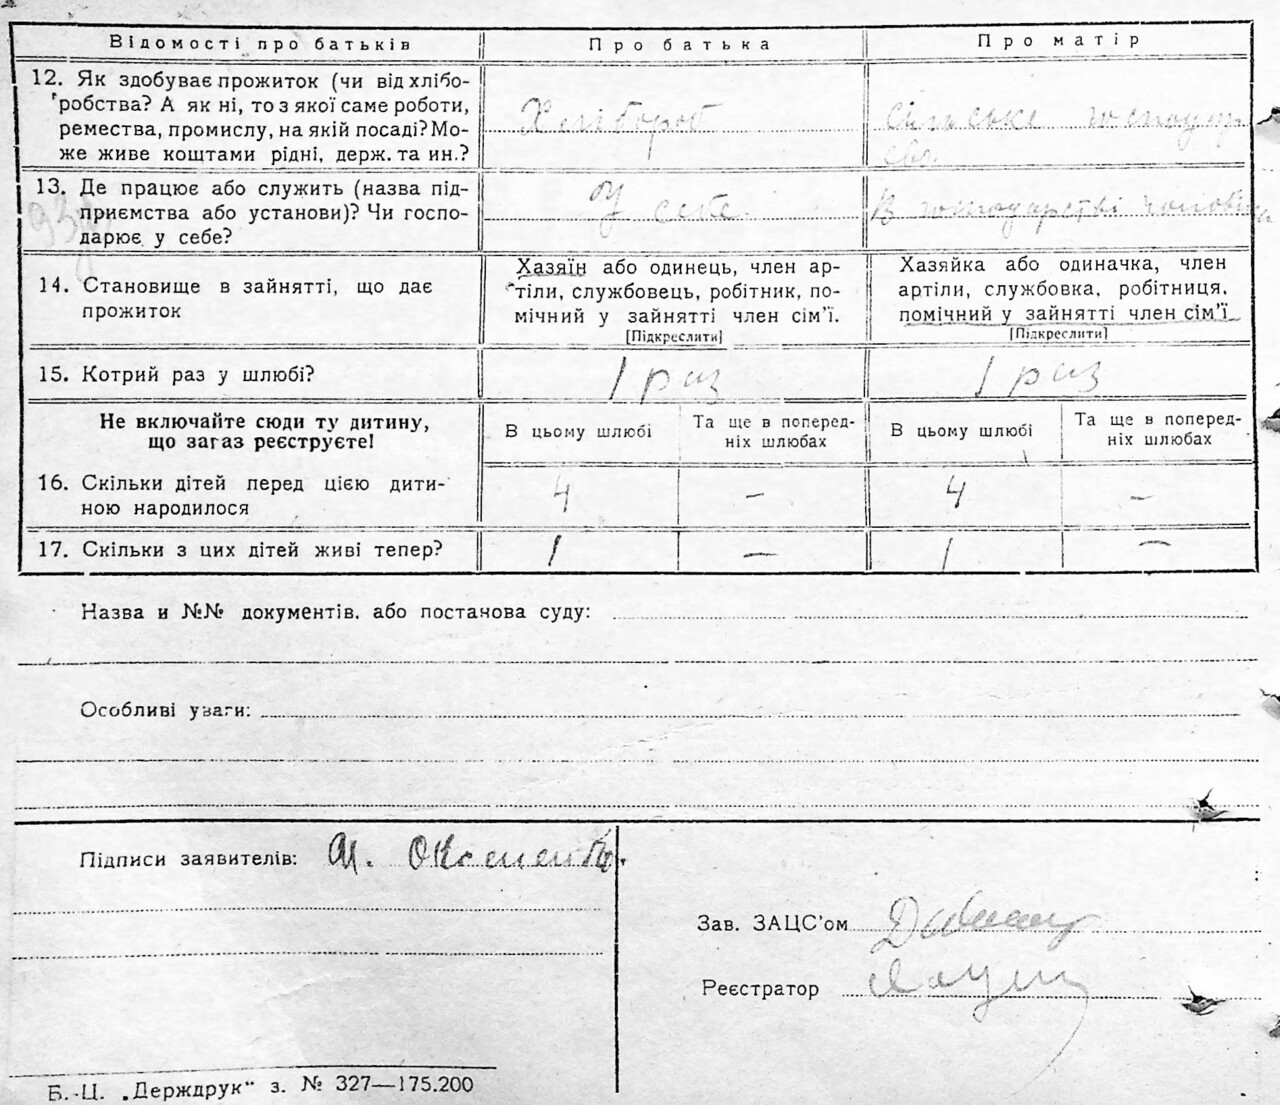 Відомості про батьків Про батька Про матір
12. Як здобуває прожиток (чи від хлібо-
робства? А як ні, то з якої саме роботи,
ремества, промислу, на якій посаді? Мо-
же живе коштами рідні, держ. та ин.?
Хлібороб
сільське господар
ств.
13. Де працює або служить (назва під-
приємства або установи)? Чи госпо-
дарює у себе?
У себе
В господарстві чоловіка
14. Становище в зайнятті, що дає
прожиток
Хазяїн або одинець, член ар-
тіли, службовець, робітник, по-
мічний у зайнятті член сім'ї.
[Підкреслити]
Хазяйка або одиначка, член
артіли, службовка, робітниця,
помічний у зайнятті член сім'ї
[Підкреслити]
15. Котрий раз у шлюбі? 1 раз 1 раз
Не включайте сюди ту дитину,
що загаз реєструєте!
В цьому шлюбі
Та ще в поперед-
ніх шлюбах
В цьому шлюбі
Та ще в поперед-
ніх шлюбах
16. Скільки дітей перед цією дити-
ною народилося
4 – 4 –
17. Скільки з цих дітей живі тепер? 1 – 1 –
Назва и №№ документів, або постанова суду:
Особливі уваги:
Підписи заявителів:
Зав. ЗАЦС'ом
Реєстратор
Б.-Ц. „Держдрук" з. № 327—175.200